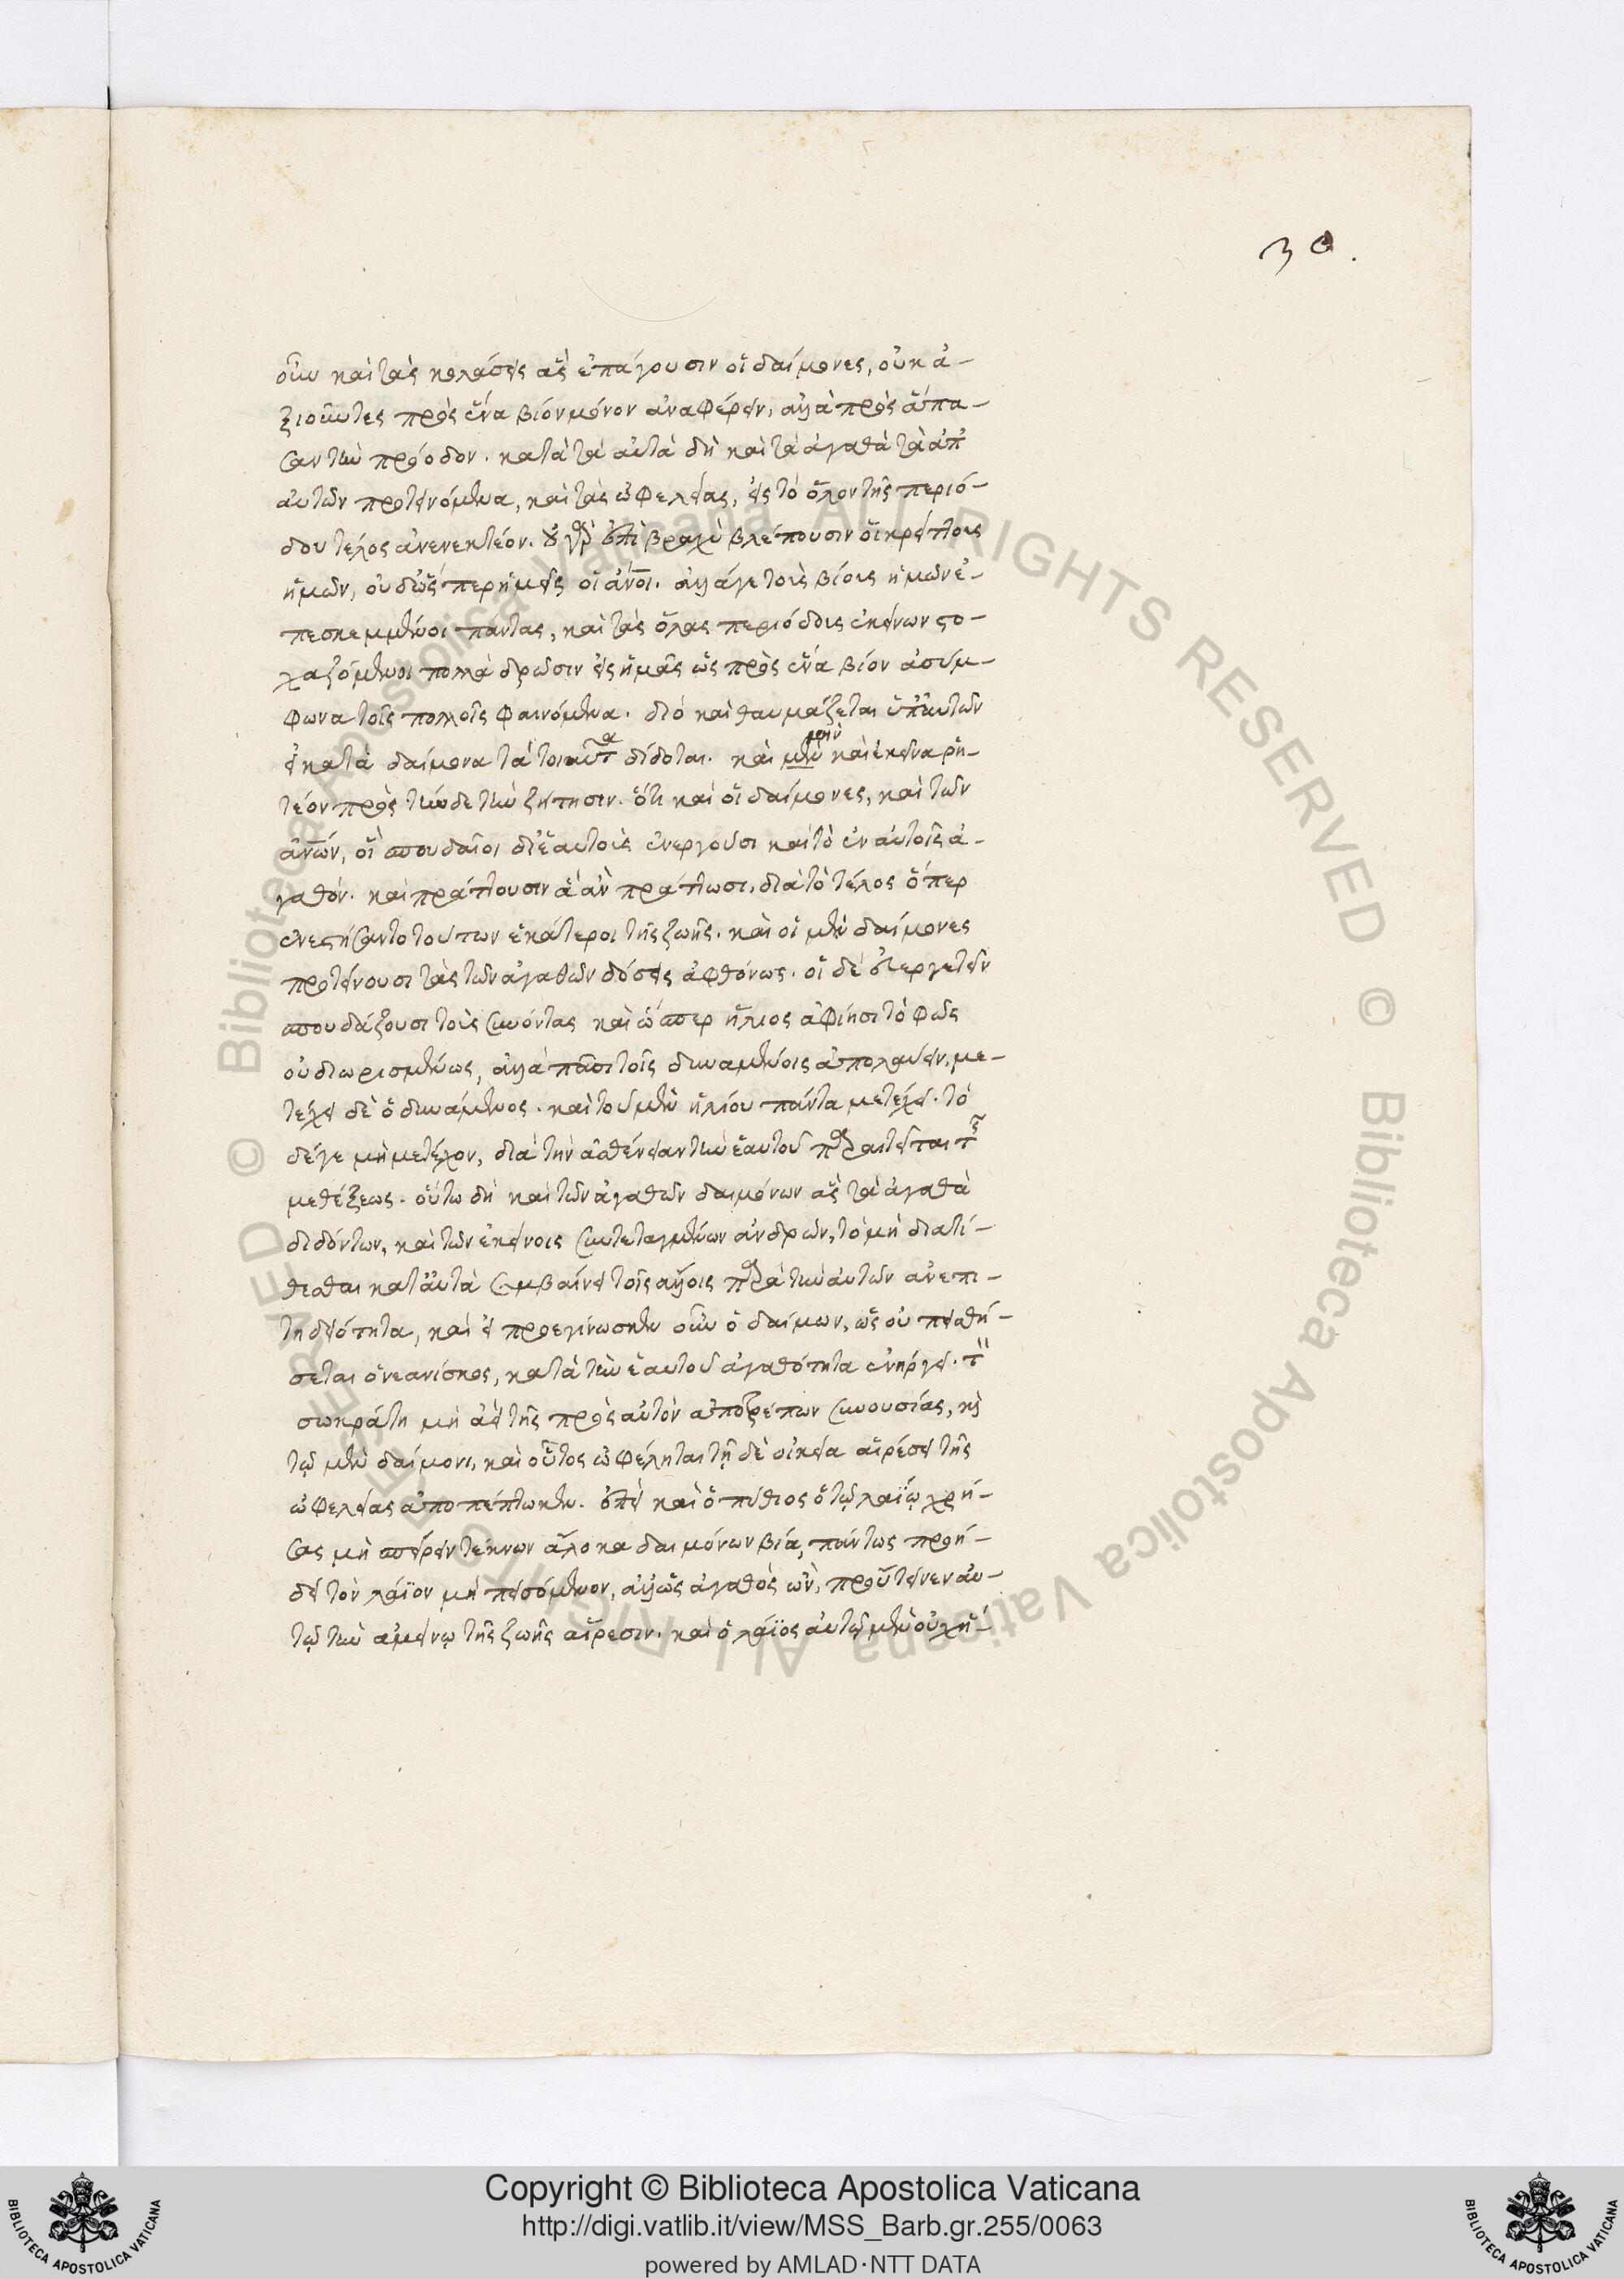 30.
οὖν καὶ τὰς κολάσεις ἃς ἐπάγουσιν οἱ δαίμονες, οὐκ ἀ-
ξιοῦντες πρὸς ἕνα βίον μόνον ἀναφέρειν, ἀλλὰ πρὸς ἅπα-
σαν τὴν πρόοδον. κατὰ τὰ αὐτὰ δὴ καὶ τὰ ἀγαθὰ τὰ ἀπ'
αὐτῶν προτεινόμενα, καὶ τὰς ὠφελείας, εἰς τὸ ὅλον τῆς περιό-
δου τέλος ἀνενεκτέον. οὐ γὰρ ἐπὶ βραχὺ βλέπουσιν οἱ κρείττους
ἡμῶν, οὐδ' ὥσπερ ἡμεῖς οἱ ἄνοι. ἀλλά γε τοὺς βίους ἡμῶν ἐ-
πεσκεμμένοι πάντας, καὶ τὰς ὅλας περιόδους ἐκείνων στο-
χαζόμενοι πολλὰ δρῶσιν εἰς ἡμᾶς ὡς πρὸς ἕνα βίον ἀσύμ-
φωνα τοῖς πολλοῖς φαινόμενα. διὸ καὶ θαυμάζεται ὑπ' αὐτῶν
εἰ κατὰ δαίμονα τὰ τοιαῦτα δίδοται. καὶ μὲν καὶ ἐκεῖνα ῥη-
τέον πρὸς τήνδε τὴν ζήτησιν. ὅτι καὶ οἱ δαίμονες, καὶ τῶν
ἀνῶν, οἱ σπουδαῖοι δι' ἑαυτοὺς ἐνεργοῦσι καὶ τὸ ἐν αὐτοῖς ἀ-
γαθόν. καὶ πράττουσιν ἃ ἂν πράττωσι, διὰ τὸ τέλος ὅπερ
ἐνεστήσαντο τούτων ἑκάτεροι τῆς ζωῆς. καὶ οἱ μὲν δαίμονες
προτείνουσι τὰς τῶν ἀγαθῶν δόσεις ἀφθόνως. οἱ δὲ εὐεργετεῖν
σπουδάζουσι τοὺς συνόντας καὶ ὥσπερ ἥλιος ἀφίησι τὸ φῶς
οὐ διωρισμένως, ἀλλὰ πᾶσι τοῖς δυναμένοις ἀπολαύειν, με-
τέχει δὲ ὁ δυνάμενος. καὶ τοῦ μὲν ἡλίου πάντα μετέχει. τὸ
δέ γε μὴ μετέχον, διὰ τὴν ἀσθένειαν τὴν ἑαυτοῦ παραιτεῖται τῆς
μεθέξεως. οὕτω δὴ καὶ τῶν ἀγαθῶν δαιμόνων ἃς τὰ ἀγαθὰ
διδόντων, καὶ τῶν ἐκείνοις συντεταγμένων ἀνδρῶν, τὸ μὴ διατί-
θεσθαι κατ' αὐτὰ συμβαίνει τοῖς ἄλλοις παρὰ τὴν αὐτῶν ἀνεπι-
τηδειότητα, καὶ εἰ προεγίνωσκεν οὖν ὁ δαίμων, ὡς οὐ πεισθή-
σεται ὁ νεανίσκος, κατὰ τὴν ἑαυτοῦ ἀγαθότητα ἐνήργει. τῷ
σωκράτη μὴ ἀεὶ τῆς πρὸς αὐτὸν ἀποτρέπων συνουσίας, καὶ
τῷ μὲν δαίμονι, καὶ οὗτος ὠφέληται τῇ δὲ οἰκεία αἱρέσει τῆς
ὠφελείας ἀποπέπτωκεν. ἐπεὶ καὶ ὁ πύθιος ὁ τῷ λαΐῳ χρή-
σας μὴ σπείρειν τέκνων ἄλοκα δαιμόνων βίᾳ, πάντως προῄ-
δει τὸν λάϊον μὴ πεισόμενον, ἀλλ' ὡς ἀγαθὸς ὢν, προὔτεινεν αὐ-
τῷ τὴν ἀμείνω τῆς ζωῆς αἵρεσιν. καὶ ὁ λάϊος αὐτῷ μὲν οὐχή-
Copyright © Biblioteca Apostolica Vaticana
http://digi.vatlib.it/view/MSS_Barb.gr.255/0063
powered by AMLAD·NTT DATA